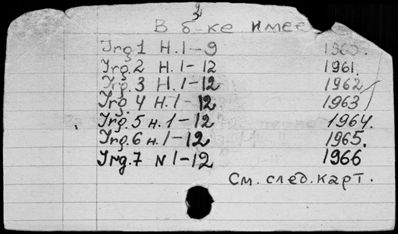 2
В б-ке имее
Jrg.1 H.1-9 1960.
Jrg.2 H.1-12 1961.
Jrg.3 H.1-12 1962
Jrg.4 H.1-12 1963
Jrg.5 н.1-12 1964.
Jrg.6 н.1-12 1965.
Jrg.7 N1-12 1966
См. след. карт.